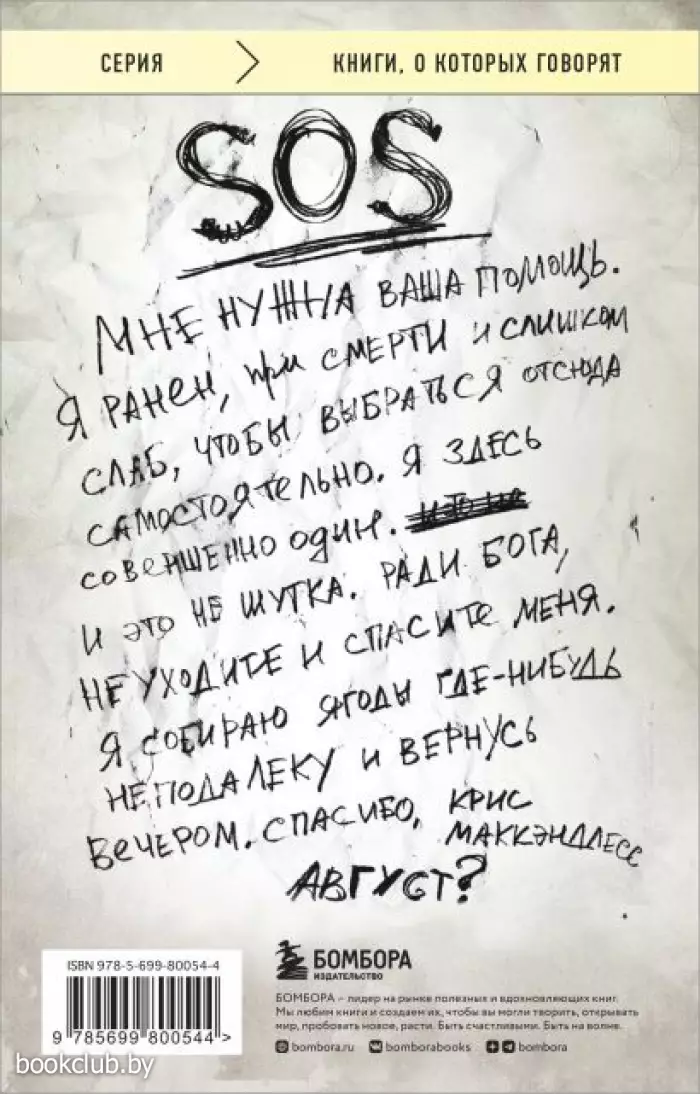 СЕРИЯ > КНИГИ, О КОТОРЫХ ГОВОРЯТ
SOS
МНЕ НУЖНА ВАША ПОМОЩЬ.
Я РАНЕН, при СМЕРТИ и слишком
СЛАБ, ЧТОБЫ ВЫБРАТЬСЯ ОТСЮДА
САМОСТОЯТЕЛЬНО. Я ЗДЕСЬ
СОВЕРШЕННО ОДИН.
И ЭТО НЕ ШУТКА. РАДИ БОГА,
НЕ УХОДИТЕ И СПАСИТЕ МЕНЯ.
Я СОБИРАЮ ЯГОДЫ ГДЕ-НИБУДЬ
НЕПОДАЛЕКУ И ВЕРНУСЬ
ВЕЧЕРОМ. СПАСИБО, КРИС
МАККЭНДЛЕСС
АВГУСТ?
ISBN 978-5-699-80054-4
9 785699 800544 >
БОМБОРА
ИЗДАТЕЛЬСТВО
БОМБОРА – лидер на рынке полезных и вдохновляющих книг.
Мы любим книги и создаем их, чтобы вы могли творить, открывать
мир, пробовать новое, расти. Быть счастливыми. Быть на волне.
bombora.ru bomborabooks bombora
bookclub.by